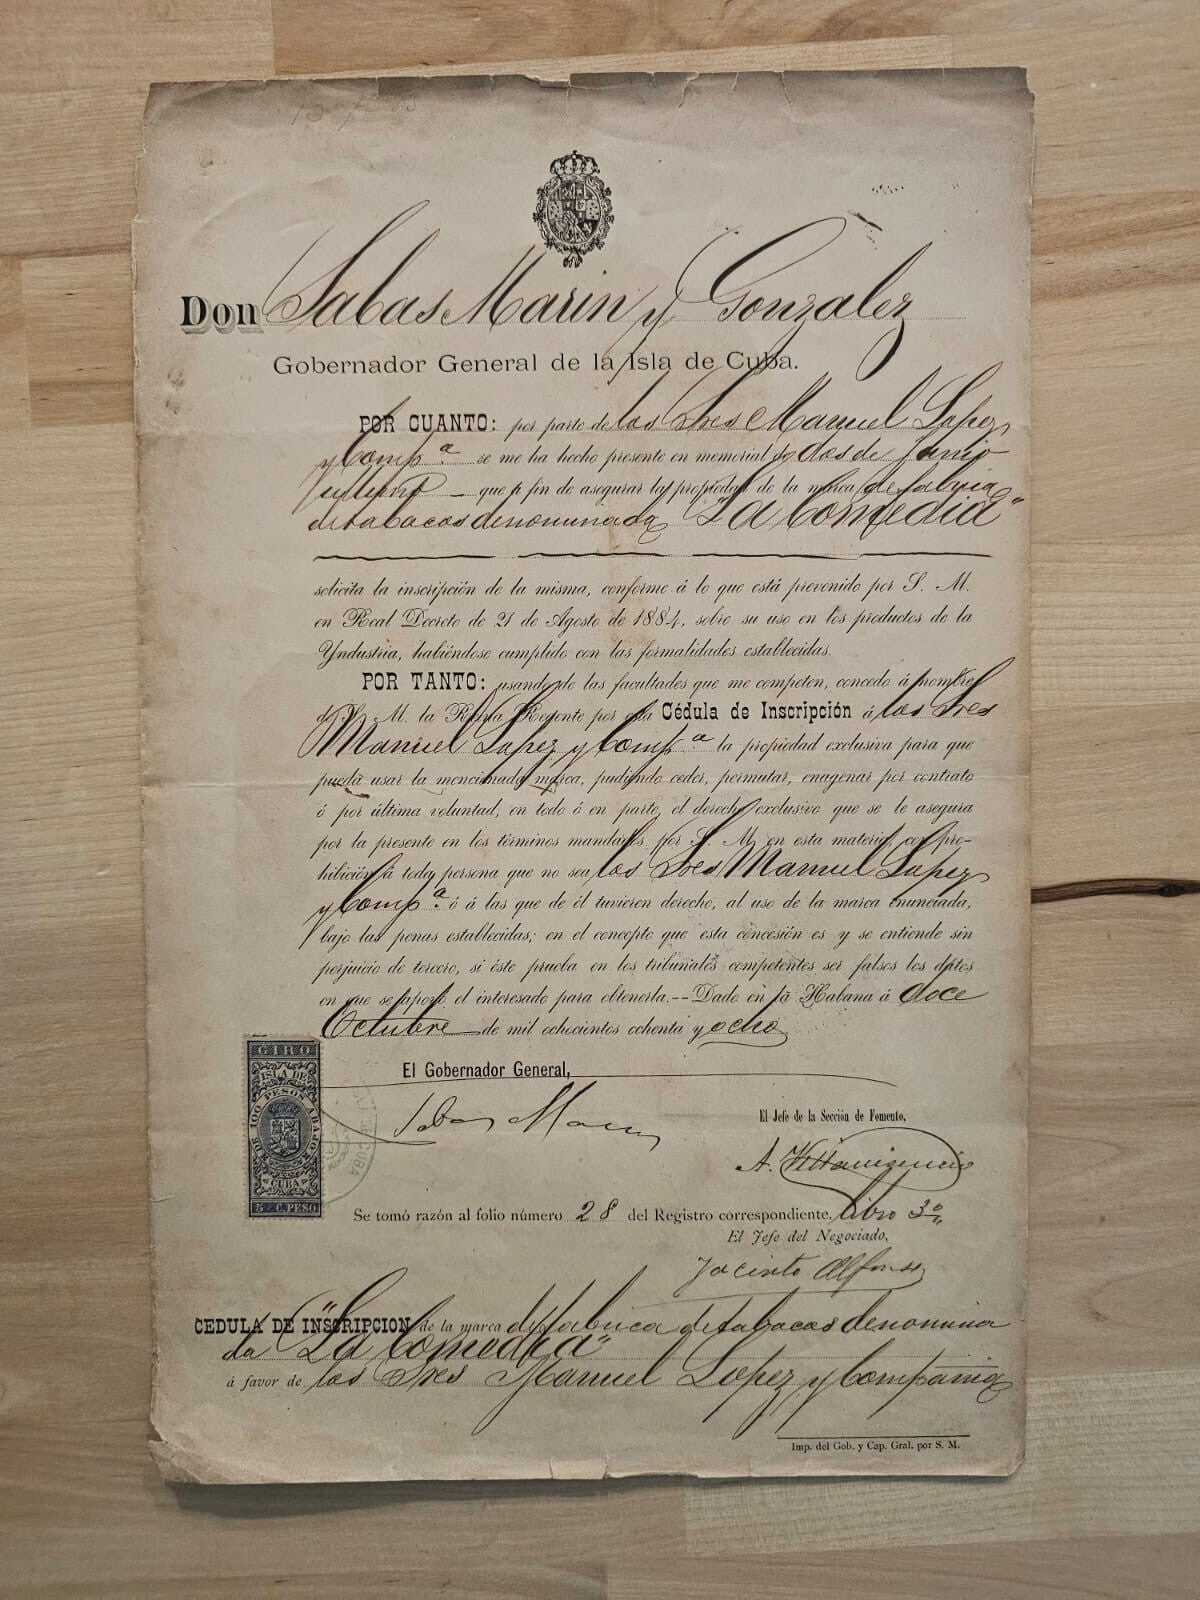 Don Sabas Marin y Gonzalez
Gobernador General de la Isla de Cuba.
POR CUANTO: por parte de los Sres Manuel Lopez
y Compª se me ha hecho presente en memorial de dos de Junio
último que á fin de asegurar la propiedad de la marca de fabrica
de tabacos denominada "La Comedia"
solicita la inscripción de la misma, conforme á lo que está prevenido por S. M.
en Real Decreto de 21 de Agosto de 1884, sobre su uso en los productos de la
Yndustria, habiéndose cumplido con las formalidades establecidas.
POR TANTO: usando de las facultades que me competen, concedo á nombre
de S. M. la Reina Regente por esta Cédula de Inscripción á los Sres
Manuel Lopez y Compª la propiedad exclusiva para que
pueda usar la mencionada marca, pudiendo ceder, permutar, enagenar por contrato
ó por última voluntad, en todo ó en parte, el derecho exclusivo que se le asegura
por la presente en los términos mandados por S. M. en esta materia, con pro-
hibición á toda persona que no sea los Sres Manuel Lopez
y Compª ó á las que de él tuvieren derecho, al uso de la marca enunciada,
bajo las penas establecidas; en el concepto que esta concesión es y se entiende sin
perjuicio de tercero, si éste prueba en los tribunales competentes ser falsos los datos
en que se apoyó el interesado para obtenerla.--Dado en la Habana á doce
Octubre de mil ochocientos ochenta y ocho
El Gobernador General,
Sabas Marin
El Jefe de la Sección de Fomento,
A. Villavicencio
GIRO
ISLA DE
DE 100 PESOS ABAJO
CUBA
5 C. PESO
CUBA
Se tomó razón al folio número 28 del Registro correspondiente, libro 3º
El Jefe del Negociado,
Jacinto Alfonso
CEDULA DE INSCRIPCION de la marca de fabrica de tabacos denomina
da "La Comedia"
á favor de los Sres Manuel Lopez y Compania
Imp. del Gob. y Cap. Gral. por S. M.